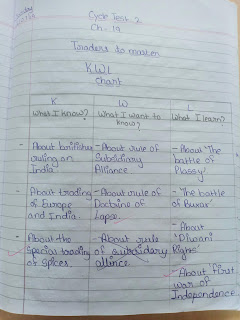 Sunday
Cycle Test 2
Ch. 19
Traders to master
KWL
chart
K
What I know?
W
What I want to
know?
L
What I learn?
- About british
ruling on
India
- About rule of
Subsidiary
Alliance
- About 'The
battle of
Plassy'
- About trading
of Europe
and India.
- About rule of
Doctrine of
Lapse.
- 'The battle
of Buxar'
- About the
special trading
of Spices.
- About rule
of subsidary
allince
- About
'Diwani
Rights'
- About first
war of
Independence